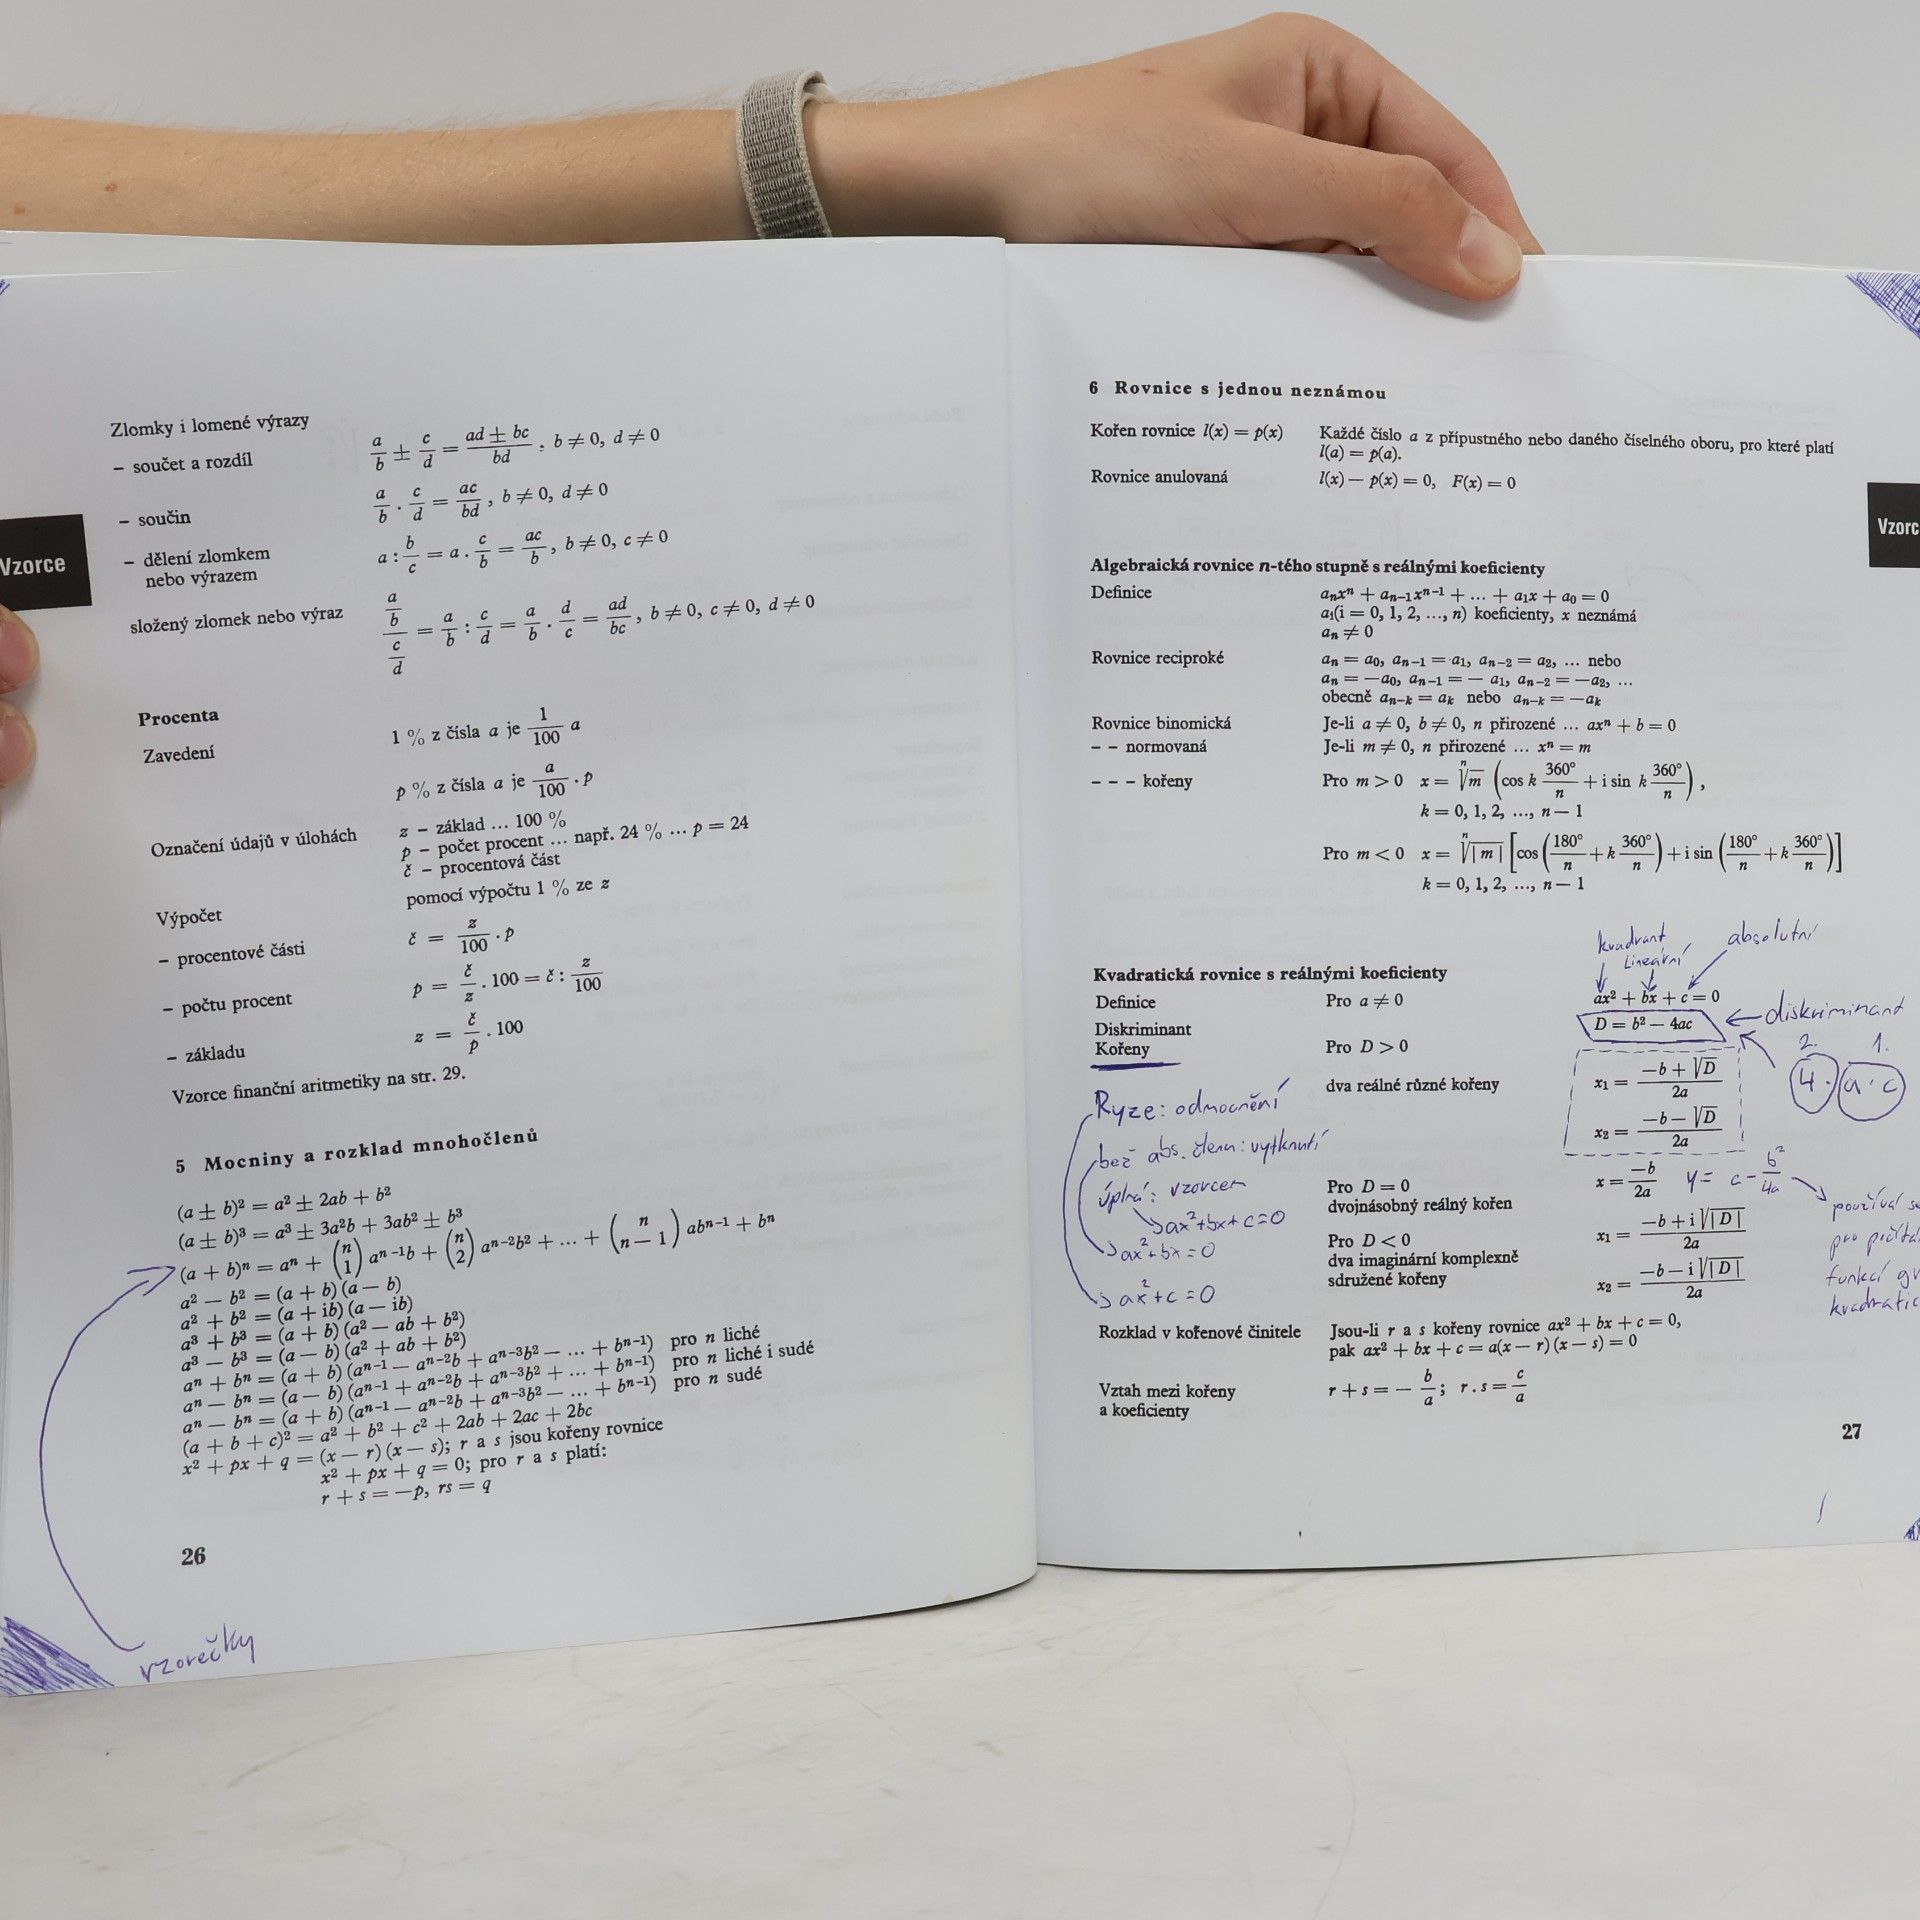 Vzorce
Zlomky i lomené výrazy
– součet a rozdíl a/b ± c/d = (ad ± bc)/bd , b ≠ 0, d ≠ 0
– součin a/b . c/d = ac/bd , b ≠ 0, d ≠ 0
– dělení zlomkem
nebo výrazem a : b/c = a . c/b = ac/b , b ≠ 0, c ≠ 0
složený zlomek nebo výraz (a/b)/(c/d) = a/b : c/d = a/b . d/c = ad/bc , b ≠ 0, c ≠ 0, d ≠ 0
Procenta
Zavedení 1 % z čísla a je 1/100 a
p % z čísla a je a/100 . p
Označení údajů v úlohách z – základ ... 100 %
p – počet procent ... např. 24 % ... p = 24
č – procentová část
Výpočet pomocí výpočtu 1 % ze z
– procentové části č = z/100 . p
– počtu procent p = č/z . 100 = č : z/100
– základu z = č/p . 100
Vzorce finanční aritmetiky na str. 29.
5 Mocniny a rozklad mnohočlenů
(a ± b)² = a² ± 2ab + b²
(a ± b)³ = a³ ± 3a²b + 3ab² ± b³
(a + b)ⁿ = aⁿ + (n 1) aⁿ⁻¹b + (n 2) aⁿ⁻²b² + ... + (n n − 1) abⁿ⁻¹ + bⁿ
a² − b² = (a + b) (a − b)
a² + b² = (a + ib) (a − ib)
a³ + b³ = (a + b) (a² − ab + b²)
a³ − b³ = (a − b) (a² + ab + b²)
aⁿ + bⁿ = (a + b) (aⁿ⁻¹ − aⁿ⁻²b + aⁿ⁻³b² − ... + bⁿ⁻¹) pro n liché
aⁿ − bⁿ = (a − b) (aⁿ⁻¹ + aⁿ⁻²b + aⁿ⁻³b² + ... + bⁿ⁻¹) pro n liché i sudé
aⁿ − bⁿ = (a + b) (aⁿ⁻¹ − aⁿ⁻²b + aⁿ⁻³b² − ... + bⁿ⁻¹) pro n sudé
(a + b + c)² = a² + b² + c² + 2ab + 2ac + 2bc
x² + px + q = (x − r) (x − s); r a s jsou kořeny rovnice
x² + px + q = 0; pro r a s platí:
r + s = −p, rs = q
26
vzorečky
6 Rovnice s jednou neznámou
Kořen rovnice l(x) = p(x) Každé číslo a z přípustného nebo daného číselného oboru, pro které platí
l(a) = p(a).
Rovnice anulovaná l(x) − p(x) = 0, F(x) = 0
Vzorc
Algebraická rovnice n-tého stupně s reálnými koeficienty
Definice aₙxⁿ + aₙ₋₁xⁿ⁻¹ + ... + a₁x + a₀ = 0
aᵢ(i = 0, 1, 2, ..., n) koeficienty, x neznámá
aₙ ≠ 0
Rovnice reciproké aₙ = a₀, aₙ₋₁ = a₁, aₙ₋₂ = a₂, ... nebo
aₙ = −a₀, aₙ₋₁ = − a₁, aₙ₋₂ = −a₂, ...
obecně aₙ₋ₖ = aₖ nebo aₙ₋ₖ = −aₖ
Rovnice binomická Je-li a ≠ 0, b ≠ 0, n přirozené ... axⁿ + b = 0
– – normovaná Je-li m ≠ 0, n přirozené ... xⁿ = m
– – – kořeny Pro m > 0 x = ⁿ√m (cos k 360°/n + i sin k 360°/n) ,
k = 0, 1, 2, ..., n − 1
Pro m < 0 x = ⁿ√|m| [cos (180°/n + k 360°/n) + i sin (180°/n + k 360°/n)]
k = 0, 1, 2, ..., n − 1
kvadrant
Lineární
absolutní
Kvadratická rovnice s reálnými koeficienty
Definice Pro a ≠ 0 ax² + bx + c = 0
Diskriminant D = b² − 4ac diskriminant
Kořeny Pro D > 0
2. 1.
4 · a · c
dva reálné různé kořeny x₁ = (−b + √D)/2a
x₂ = (−b − √D)/2a
Ryze: odmocnění
bez abs. členu: vytknutí
úplná: vzorcem
ax²+bx+c=0
ax²+bx=0
ax²+c=0
Pro D = 0 x = −b/2a y = c − b²/4a
dvojnásobný reálný kořen
používá se
pro
funkcí
Pro D < 0 x₁ = (−b + i√|D|)/2a
dva imaginární komplexně
sdružené kořeny x₂ = (−b − i√|D|)/2a
Rozklad v kořenové činitele Jsou-li r a s kořeny rovnice ax² + bx + c = 0,
pak ax² + bx + c = a(x − r) (x − s) = 0
Vztah mezi kořeny
a koeficienty r + s = − b/a ; r . s = c/a
27